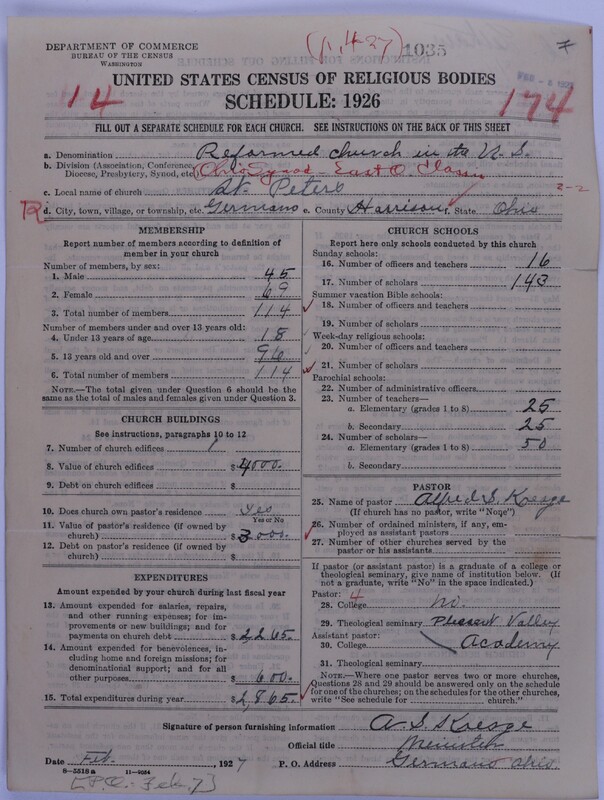 DEPARTMENT OF COMMERCE
BUREAU OF THE CENSUS
WASHINGTON
(1,4-27)
1035
UNITED STATES CENSUS OF RELIGIOUS BODIES
14
SCHEDULE: 1926
174
FILL OUT A SEPARATE SCHEDULE FOR EACH CHURCH. SEE INSTRUCTIONS ON THE BACK OF THIS SHEET
a. Denomination Reformed Church in the U.S.
b. Division (Association, Conference, Diocese, Presbytery, Synod, etc.) Ohio Synod - East O. Classis
c. Local name of church St. Peters
2-2
R
d. City, town, village, or township, etc. Germano e. County Harrison f. State Ohio
MEMBERSHIP
Report number of members according to definition of
member in your church
Number of members, by sex:
1. Male 45
2. Female 69
3. Total number of members 114
Number of members under and over 13 years old:
4. Under 13 years of age 18
5. 13 years old and over 96
6. Total number of members 114
NOTE.—The total given under Question 6 should be the
same as the total of males and females given under Question 3.
CHURCH BUILDINGS
See instructions, paragraphs 10 to 12
7. Number of church edifices 1
8. Value of church edifices $ 4000.
9. Debt on church edifices $
10. Does church own pastor's residence Yes
Yes or No
11. Value of pastor's residence (if owned by
church) $ 3000.
12. Debt on pastor's residence (if owned by
church) $
EXPENDITURES
Amount expended by your church during last fiscal year
13. Amount expended for salaries, repairs,
and other running expenses; for im-
provements or new buildings; and for
payments on church debt $ 2,265.
14. Amount expended for benevolences, in-
cluding home and foreign missions; for
denominational support; and for all
other purposes $ 600.
15. Total expenditures during year $ 2,865.
CHURCH SCHOOLS
Report here only schools conducted by this church
Sunday schools:
16. Number of officers and teachers 16
17. Number of scholars 143
Summer vacation Bible schools:
18. Number of officers and teachers
19. Number of scholars
Week-day religious schools:
20. Number of officers and teachers
21. Number of scholars
Parochial schools:
22. Number of administrative officers
23. Number of teachers—
a. Elementary (grades 1 to 8) 25
b. Secondary 25
24. Number of scholars—
a. Elementary (grades 1 to 8) 50
b. Secondary
PASTOR
25. Name of pastor Alfred S. Kresge
(If church has no pastor, write "None")
26. Number of ordained ministers, if any, em-
ployed as assistant pastors
27. Number of other churches served by the
pastor or his assistants
If pastor (or assistant pastor) is a graduate of a college or
theological seminary, give name of institution below. (If
not a graduate, write "No" in the space indicated.)
Pastor: 4
28. College no.
29. Theological seminary Pleasant Valley
Assistant pastor: Academy
30. College
31. Theological seminary
NOTE.—Where one pastor serves two or more churches,
Questions 28 and 29 should be answered only on the schedule
for one of the churches; on the schedules for the other churches,
write "See schedule for church."
Signature of person furnishing information A. S. Kresge
Official title Minister
Date Feb. , 1927 P. O. Address Germano Ohio
8—5518a 11—9034
[P.O. Feb. 7]